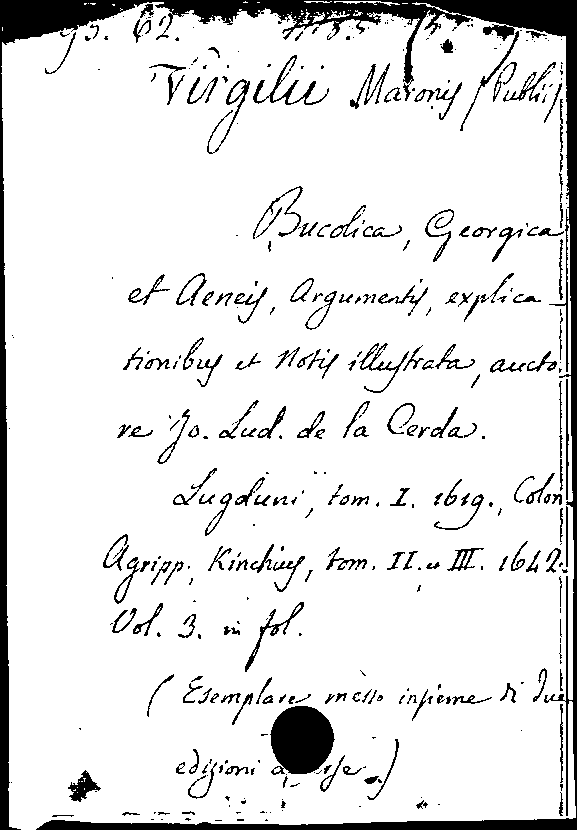 62.
Virgilii Maronis (Publii)
Bucolica, Georgica
et Aeneis, Argumentis, explica-
tionibus et Notis illustrata, aucto-
re Jo. Lud. de la Cerda.
Lugduni, tom. I. 1619., Colon.
Agripp. Kinchius, tom. II. u III. 1642.
Vol. 3. in fol.
(Esemplare messo insieme di due
edizioni .)